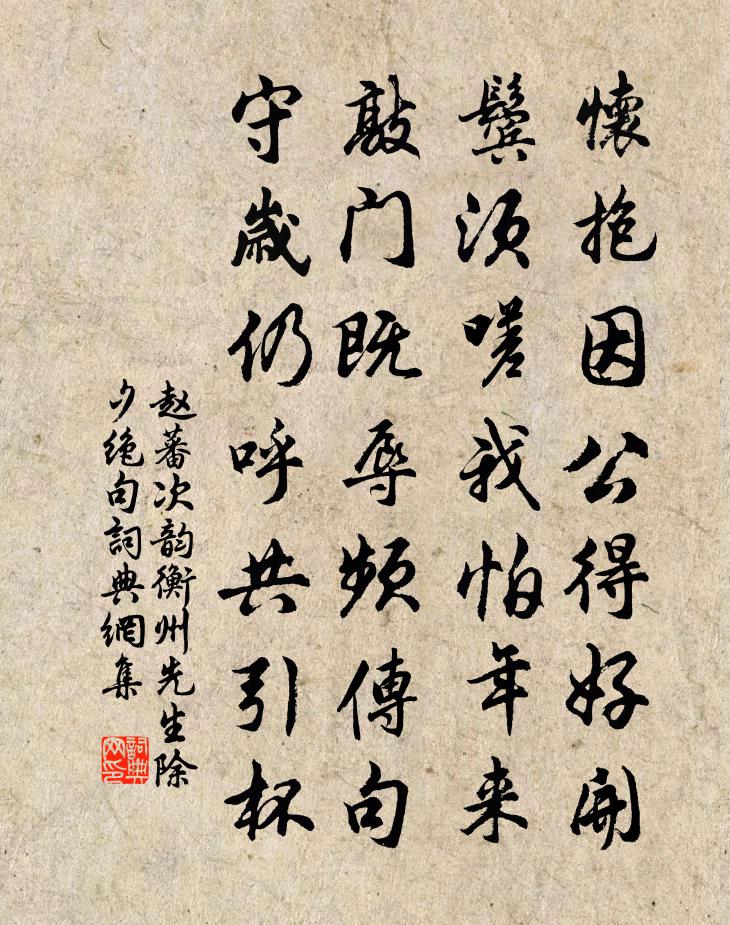 懷抱因公得好開
鬢须嗟我怕年来
敲门既辱频傳句
守歲仍呼共引杯
赵蕃次韵衡州先生除
夕绝句詞典網集
詞典
网印